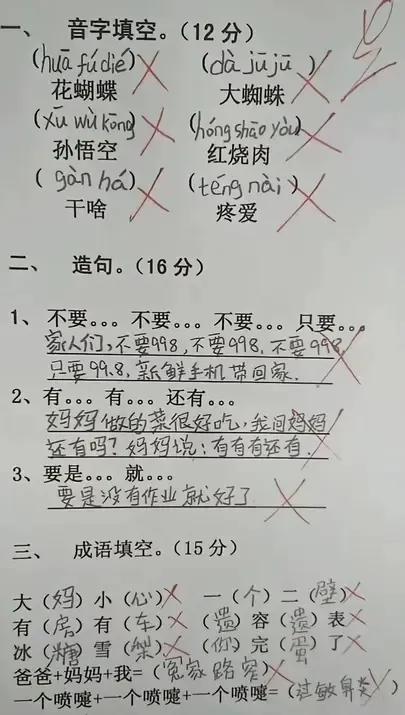 一、 音字填空。(12分)
(huā fú dié) (dà jū jū)
花蝴蝶 大蜘蛛
(xū wù kōng) (hóng shāo yòu)
孙悟空 红烧肉
(gàn há) (téng nài)
干啥 疼爱
二、 造句。(16分)
1、不要。。。不要。。。不要。。。只要。。。
家人们,不要998,不要998,不要998,
只要99.8,新鲜手机带回家.
2、有。。。有。。。还有。。。
妈妈做的菜很好吃,我问妈妈
还有吗?妈妈说:有有有还有.
3、要是。。。就。。。
要是没有作业就好了
三、 成语填空。(15分)
大(妈)小(心) 一(个)二(壁)
有(房)有(车) (遗)容(遗)表
冰(糖)雪(梨) (你)完(蛋)了
爸爸+妈妈+我=(冤家路窄)
一个喷嚏+一个喷嚏+一个喷嚏=(过敏鼻炎)